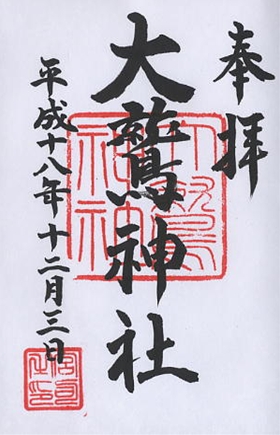 奉拝
大鷲神社
平成十八年十二月三日